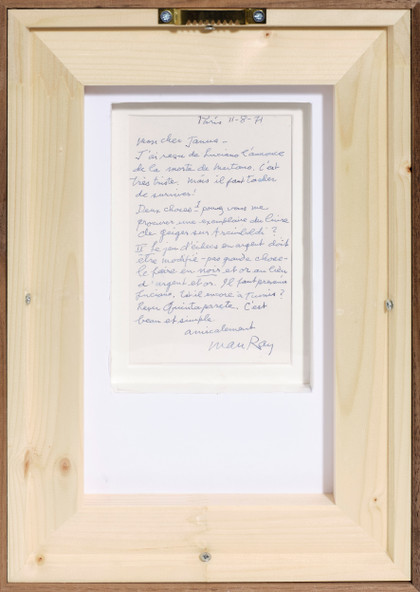 Paris 11-8-71
Mon cher Janus -
J'ai reçu de Luciano l'annonce
de la morte de Martano. C'est
très triste. Mais il faut tacher
de survivre!
Deux choses: I pouvez vous me
procurer une exemplaire du livre
de Geiger sur Arcimboldi?
II Le jeu d'échecs en argent doit
être modifié - pas grande chose -
le faire en noir et or au lieu
d'argent et or. Il faut
Luciano. Est-il encore à Tunis?
Reçu Quinta parete. C'est
beau et simple
amicalement
Man Ray